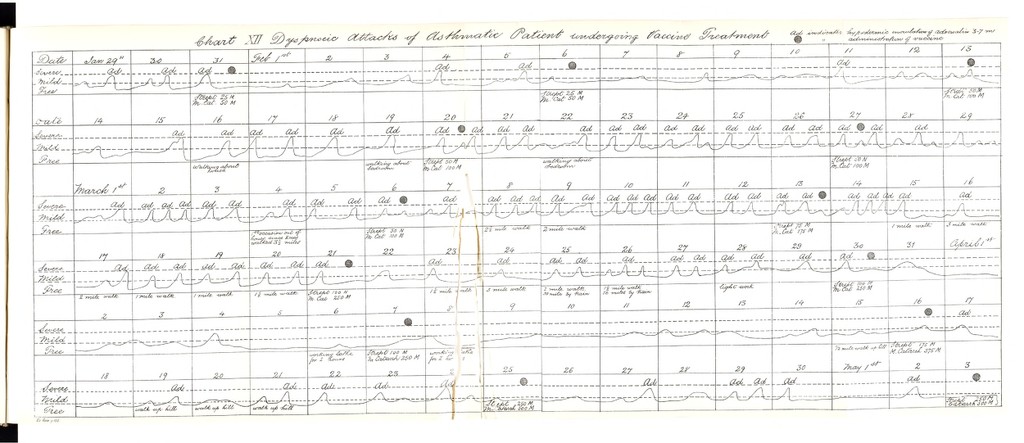 Chart XII Dyspnoeic Attacks of Asthmatic Patient undergoing Vaccine Treatment
Ad indicates hypodermic inoculation of adrenalin 3-7 m
administration of vaccine
Date Jan 29th 30 31 Feb 1st 2 3 4 5 6 7 8 9 10 11 12 13
Severe Ad Ad Ad Ad Ad Ad
Mild
Free
Strept 25 M Strept 25 M Strept 50 M
M. Cat 50 M M. Cat 50 M M. Cat 100 M
Date 14 15 16 17 18 19 20 21 22 23 24 25 26 27 28 29
Severe Ad Ad Ad Ad Ad Ad Ad Ad Ad Ad Ad Ad Ad Ad Ad Ad Ad Ad Ad Ad Ad Ad
Mild
Free
Walking about walking about Strept 50 M walking about Strept 50 M
M. Cat 100 M M. Cat 100 M
March 1st 2 3 4 5 6 7 8 9 10 11 12 13 14 15 16
Severe Ad Ad Ad Ad Ad Ad Ad Ad Ad Ad Ad Ad Ad Ad Ad Ad Ad Ad Ad Ad Ad Ad Ad Ad Ad Ad Ad Ad Ad Ad Ad
Mild
Free
walked 3½ miles 2½ mile walk 2 mile walk 1 mile walk 3 mile walk
M. Cat 100 M M. Cat 175 M
17 18 19 20 21 22 23 24 25 26 27 28 29 30 31 April 1st
Severe Ad Ad Ad Ad Ad Ad Ad Ad Ad Ad Ad Ad Ad Ad Ad Ad Ad Ad Ad Ad Ad
Mild
Free
2 mile walk 1 mile walk 1 mile walk 1½ mile walk Strept 100 M 1½ mile walk mile walk mile walk 1½ mile walk light work Strept 100 M
M. Cat 250 M by train by train M. Cat 250 M
2 3 4 5 6 7 8 9 10 11 12 13 14 15 16 17
Severe Ad
Mild
Free
working lathe Strept 100 M working mile walk up hill Strept 175 M
for 2 hours M. Catarrh 250 M for 2 M. Catarrh 375 M
18 19 20 21 22 23 25 26 27 28 29 30 May 1st 2 3
Severe Ad Ad Ad Ad Ad Ad Ad Ad
Mild
Free
walk up hill walk up hill walk up hill Strept 250 M Strept 250 M
M. Catarrh 500 M Catarrh 500 M